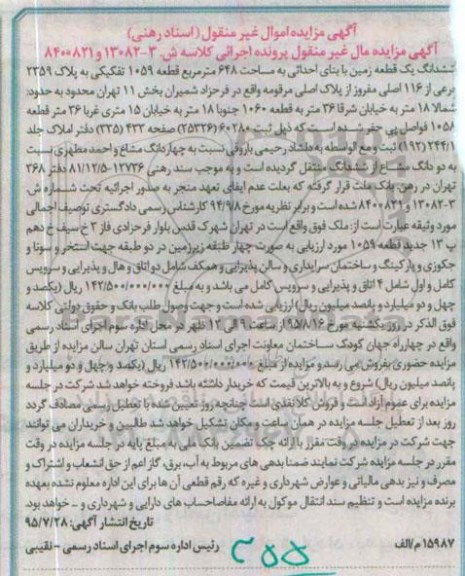 آگهی مزایده اموال غیر منقول (اسناد رهنی)
آگهی مزایده مال غیر منقول پرونده اجرائی کلاسه ش. ۳-۱۳۰۸۲ و ۸۴۰۰۸۳۱
ششدانگ یک قطعه زمین با بنای احداثی به مساحت ۶۴۸ مترمربع قطعه ۱۰۵۹ تفکیکی به پلاک ۲۳۵۹
فرعی از ۱۱۶ اصلی مفروز از پلاک اصلی مرقومه واقع در فرحزاد شمیران بخش ۱۱ تهران محدود به حدود:
شمالا ۱۸ متر به خیابان شرقا ۳۶ متر به قطعه ۱۰۶۰ جنوبا ۱۸ متر به خیابان ۱۵ متری غربا ۳۶ متر قطعه
۱۰۵۸ فواصل پی حفر شده است که ذیل ثبت ۶۰۲۸۰ (۲۵۳۳۶) صفحه ۴۳۳ (۳۳۵) دفتر املاک جلد
۲۴۴/۱ (۱۹۲) ثبت و مع الواسطه به دلشاد رحیمی باروقی نسبت به چهار دانگ مشاع و احمد مطهری نسبت
به دو دانگ مشاع از ششدانگ منتقل گردیده است و به موجب سند رهنی ۱۲۷۳۶-۸۱/۱۲/۵ دفتر ۳۶۸
تهران در رهن بانک ملت قرار گرفته که بعلت عدم ایفای تعهد منجر به صدور اجرائیه تحت شماره ش.
۳-۱۳۰۸۲ و ۸۴۰۰۸۳۱ شده است و برابر نظریه مورخ ۹۴/۹/۸ کارشناس رسمی دادگستری توصیف اجمالی
مورد وثیقه عبارت است از: ملک فوق واقع است در تهران شهرک قدس بلوار فرحزادی فاز ۳ خ سیف خ دهم
پ ۱۳ جدید قطعه ۱۰۵۹ مورد ارزیابی به صورت چهار طبقه زیرزمین در دو طبقه جهت استخر و سونا و
جکوزی و پارکینگ و ساختمان سرایداری و سالن پذیرایی و همکف شامل دو اتاق و هال و پذیرایی و سرویس
کامل و اول شامل ۴ اتاق و پذیرایی و سرویس کامل می باشد و به مبلغ ۱۴۲/۵۰۰/۰۰۰/۰۰۰ ریال (یکصد و
چهل و دو میلیارد و پانصد میلیون ریال) ارزیابی شده است و جهت وصول طلب بانک و حقوق دولتی کلاسه
فوق الذکر در روز یکشنبه مورخ ۹۵/۸/۱۶ از ساعت ۹ الی ۱۲ ظهر در محل اداره سوم اجرای اسناد رسمی
واقع در چهارراه جهان کودک ساختمان معاونت اجرای اسناد رسمی استان تهران سالن مزایده از طریق
مزایده حضوری بفروش می رسد و مزایده از مبلغ ۱۴۲/۵۰۰/۰۰۰/۰۰۰ ریال (یکصد و چهل و دو میلیارد و
پانصد میلیون ریال) شروع و به بالاترین قیمت که خریدار داشته باشد فروخته خواهد شد شرکت در جلسه
مزایده برای عموم آزاد است و فروش کلا نقدی است چنانچه روز تعیین شده با تعطیل رسمی مصادف گردد
روز بعد از تعطیل جلسه مزایده در همان ساعت و مکان تشکیل خواهد شد طالبین و خریداران می توانند
جهت شرکت در مزایده در وقت مقرر با ارائه چک تضمین بانک ملی به مبلغ پایه در جلسه مزایده در وقت
مقرر در جلسه مزایده شرکت نمایند ضمنا بدهی های مربوط به آب، برق، گاز اعم از حق انشعاب و اشتراک و
مصرف و نیز بدهی مالیاتی و عوارض شهرداری و غیره که رقم قطعی آن ها برای این اداره معلوم نشده بعهده
برنده مزایده است و تنظیم سند انتقال موکول به ارائه مفاصاحساب های دارایی و شهرداری و ... خواهد بود.
تاریخ انتشار آگهی: ۹۵/۷/۲۸
۱۵۹۸۷ م/الف
رئیس اداره سوم اجرای اسناد رسمی - نقیبی